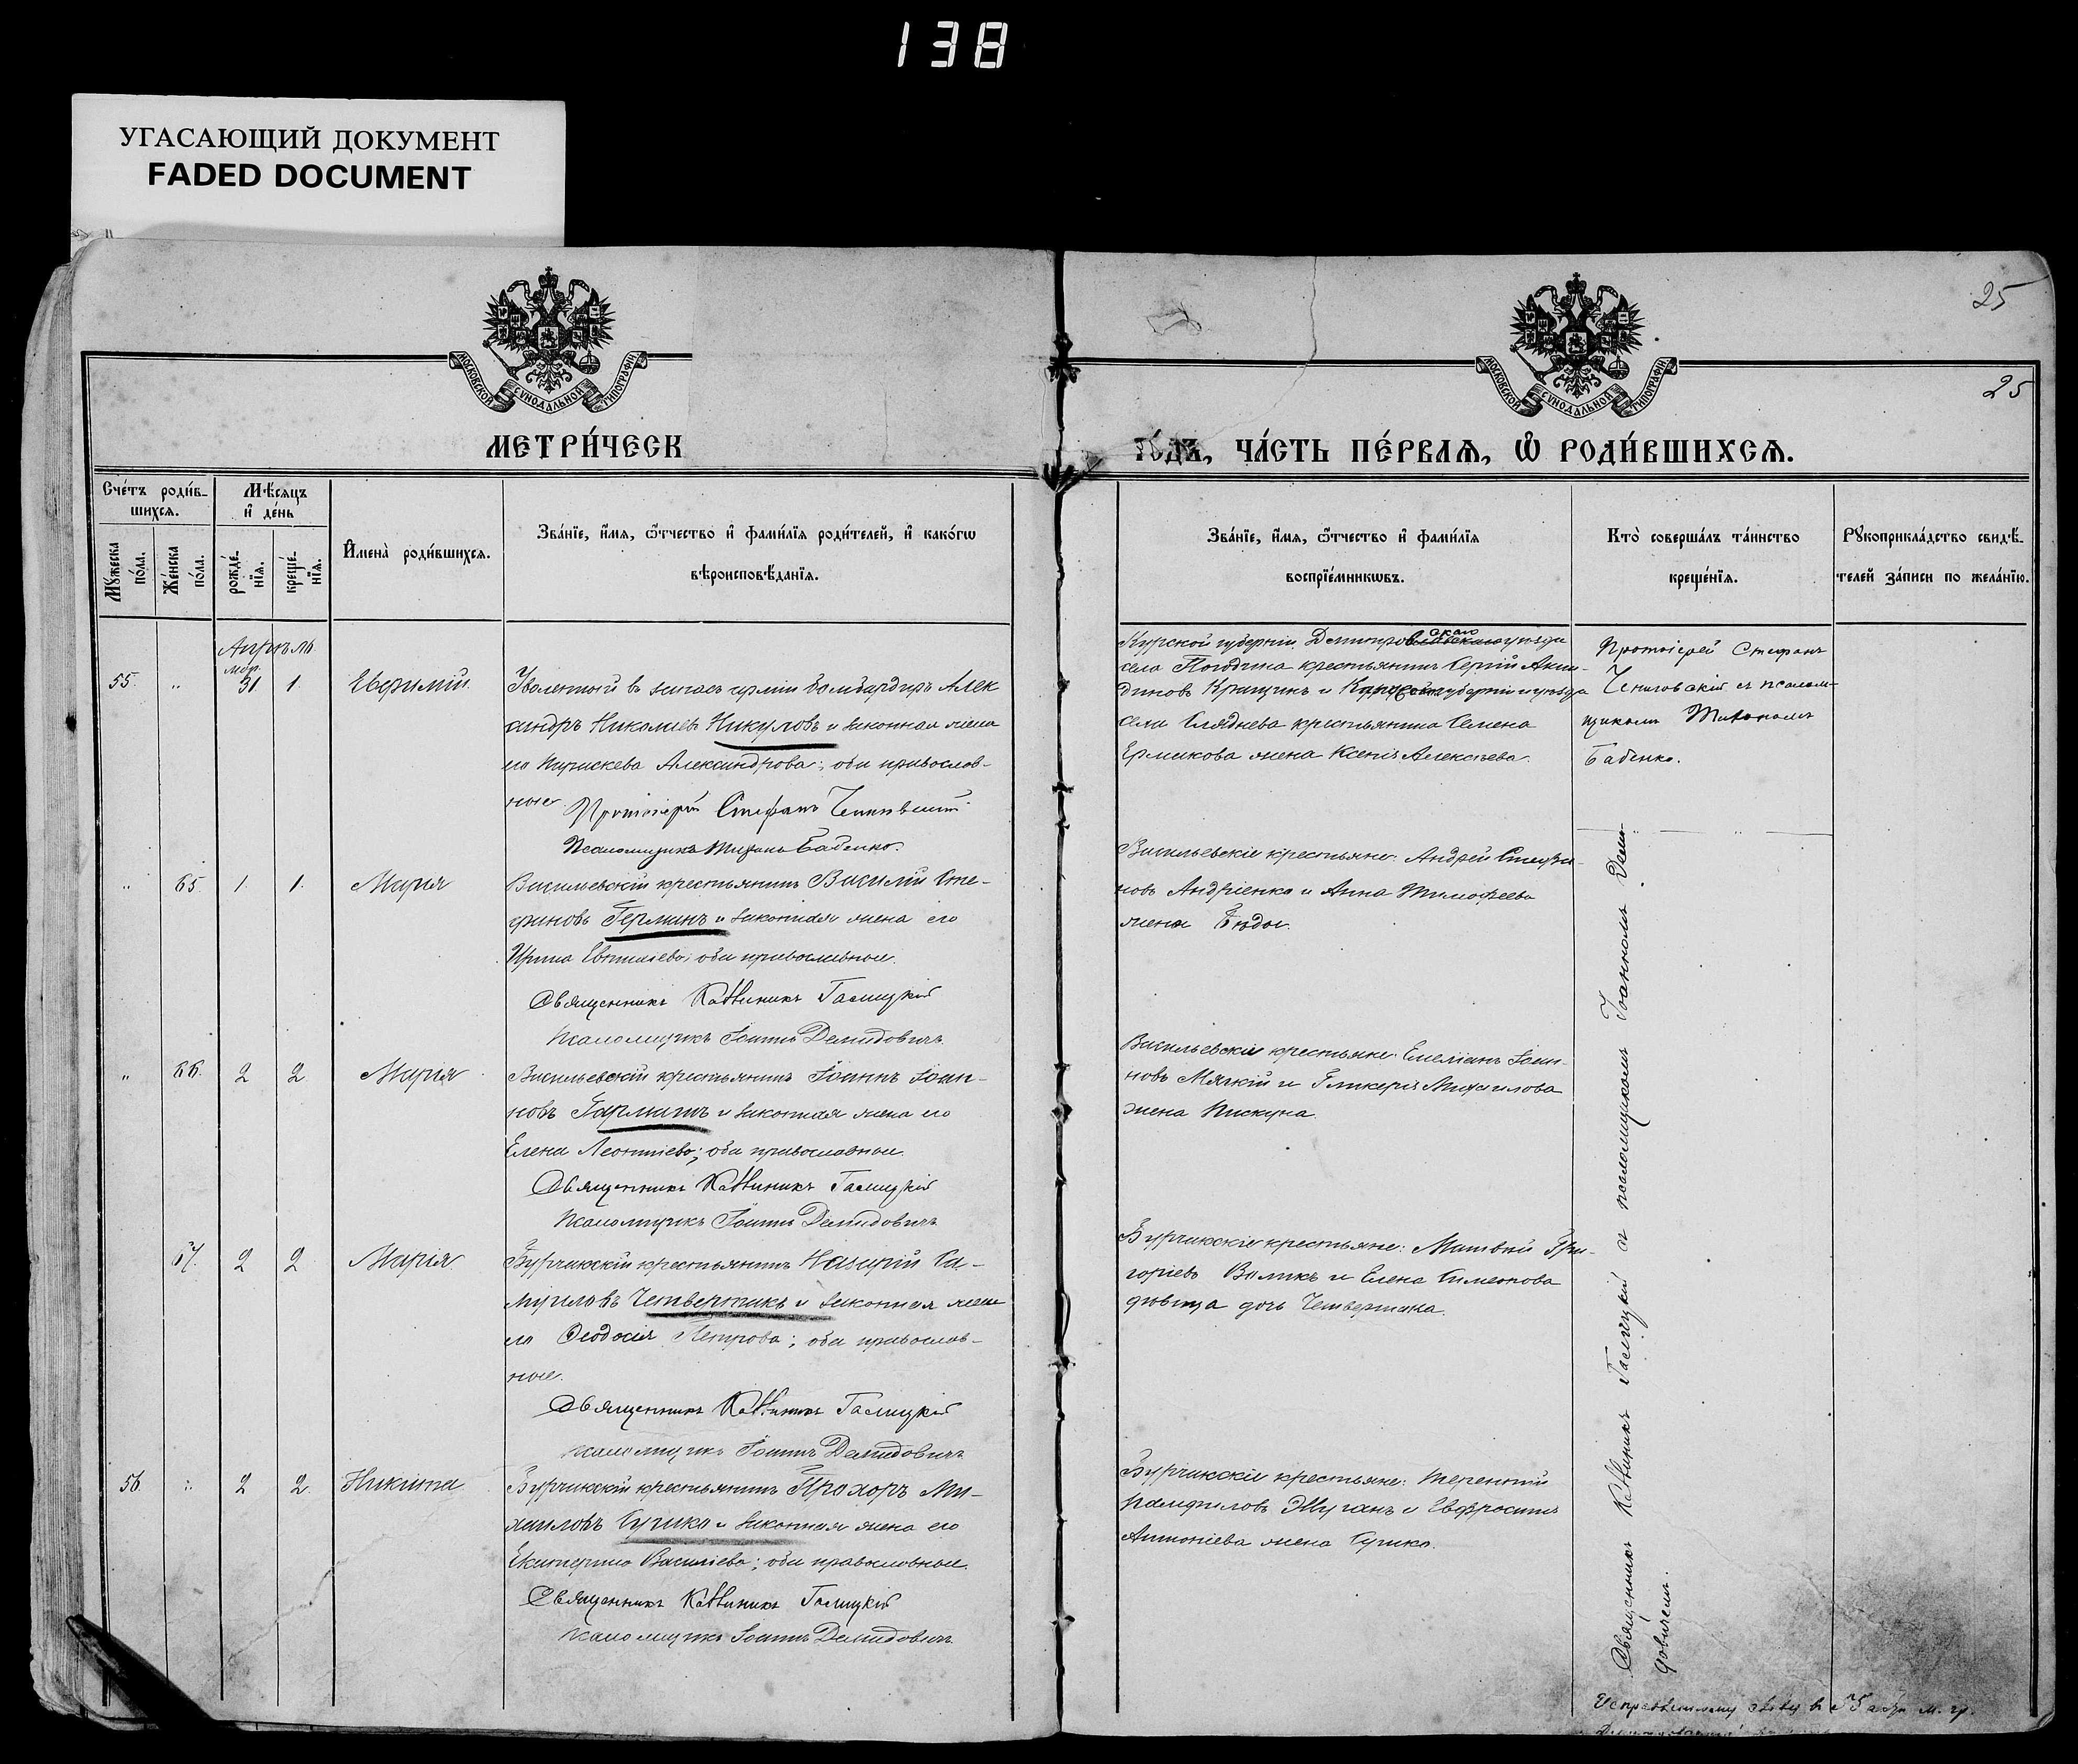 138
УГАСАЮЩИЙ ДОКУМЕНТ
FADED DOCUMENT
25
МОСКОВСКОЙ СѴНОДАЛЬНОЙ ТИПОГРАФІИ
МОСКОВСКОЙ СѴНОДАЛЬНОЙ ТИПОГРАФІИ
25
МЕТРИ́ЧЕСК
го́дъ, ЧА́СТЬ ПЕ́РВАѦ, Ѿ РОДИ́ВШИХСѦ.
Сче́тъ роди́в-
шихсѧ.
Мꙋжеска по́ла.
Же́нска по́ла.
Мѣ́сѧцъ
и҆ де́нь
рожде́-
нїѧ.
креще́-
нїѧ.
И҆мена̀ роди́вшихсѧ.
Зва́нїе, и҆́мѧ, ѻ҆́тчество и҆ фами́лїѧ роди́телей, и҆ како́гѡ
вѣроисповѣ́данїѧ.
Зва́нїе, и҆́мѧ, ѻ҆́тчество и҆ фами́лїѧ
воспрїе́мникѡвъ.
Кто̀ соверша́лъ та́инство
креще́нїѧ.
Рꙋкоприкла́дство свидѣ́-
телей за́писи по жела́нїю.
Апрѣль
55. " мар. 31 1. Евфимій
Уволенный в запасъ арміи бомбардиръ Алек
сандръ Николаевъ Никуловъ и законная жена
его Параскева Александрова; оба православ-
ные.
Протоіерей Стефанъ
Псаломщикъ Тихонъ Бабенко.
Курской губерніи, Дмитровскаго уѣзда
села Погодина крестьянинъ Сергій Акин-
диновъ Крищинъ и губерніи и уѣзда
села крестьянина Семена
Ермакова жена Ксенія Алексѣева.
Протоіерей Стефанъ
съ псалом-
щикомъ Тихономъ
Бабенко.
" 65. 1. 1. Марія
Васильевскій крестьянинъ Василій Сте-
фановъ Германъ и законная жена его
Ирина Евтихіева; оба православные.
Священникъ Каллиникъ Галицкій
Псаломщикъ Іоаннъ Демидовичъ
Васильевскіе крестьяне: Андрей Стефа-
новъ Андріенко и Анна Тимофеева
жена Бѣды.
" 66. 2 2 Марія
Васильевскій крестьянинъ Іоаннъ Іоан-
новъ Германъ и законная жена его
Елена Леонтіева; оба православные.
Священникъ Каллиникъ Галицкій
Псаломщикъ Іоаннъ Демидовичъ
Васильевскіе крестьяне: Емеліанъ Іоан-
новъ Мягкій и Гликерія Михаилова
жена Пискуна
67. 2 2 Марія
Бурчакскій крестьянинъ Назарій Са-
муиловъ Четвертакъ и законная жена
его Ѳеодосія Петрова; оба православ-
ные.
Священникъ Каллиникъ Галицкій
псаломщикъ Іоаннъ Демидовичъ
Бурчакскіе крестьяне: Матвѣй Гри-
горіевъ Воликъ и Елена Симеонова
дѣвица дочь Четвертака.
56. " 2 2. Никита
Бурчакскій крестьянинъ Прохоръ Ми-
хаиловъ Сушко и законная жена его
Екатерина Василіева; оба православные.
Священникъ Каллиникъ Галицкій
псаломщикъ Іоаннъ Демидовичъ
Бурчакскіе крестьяне: Терентій
Памфиловъ Жуганъ и Евфросинія
Антоніева жена Сушко.
Священникъ Каллиникъ Галицкій съ псаломщикомъ Іоанномъ Деми-
довичемъ.